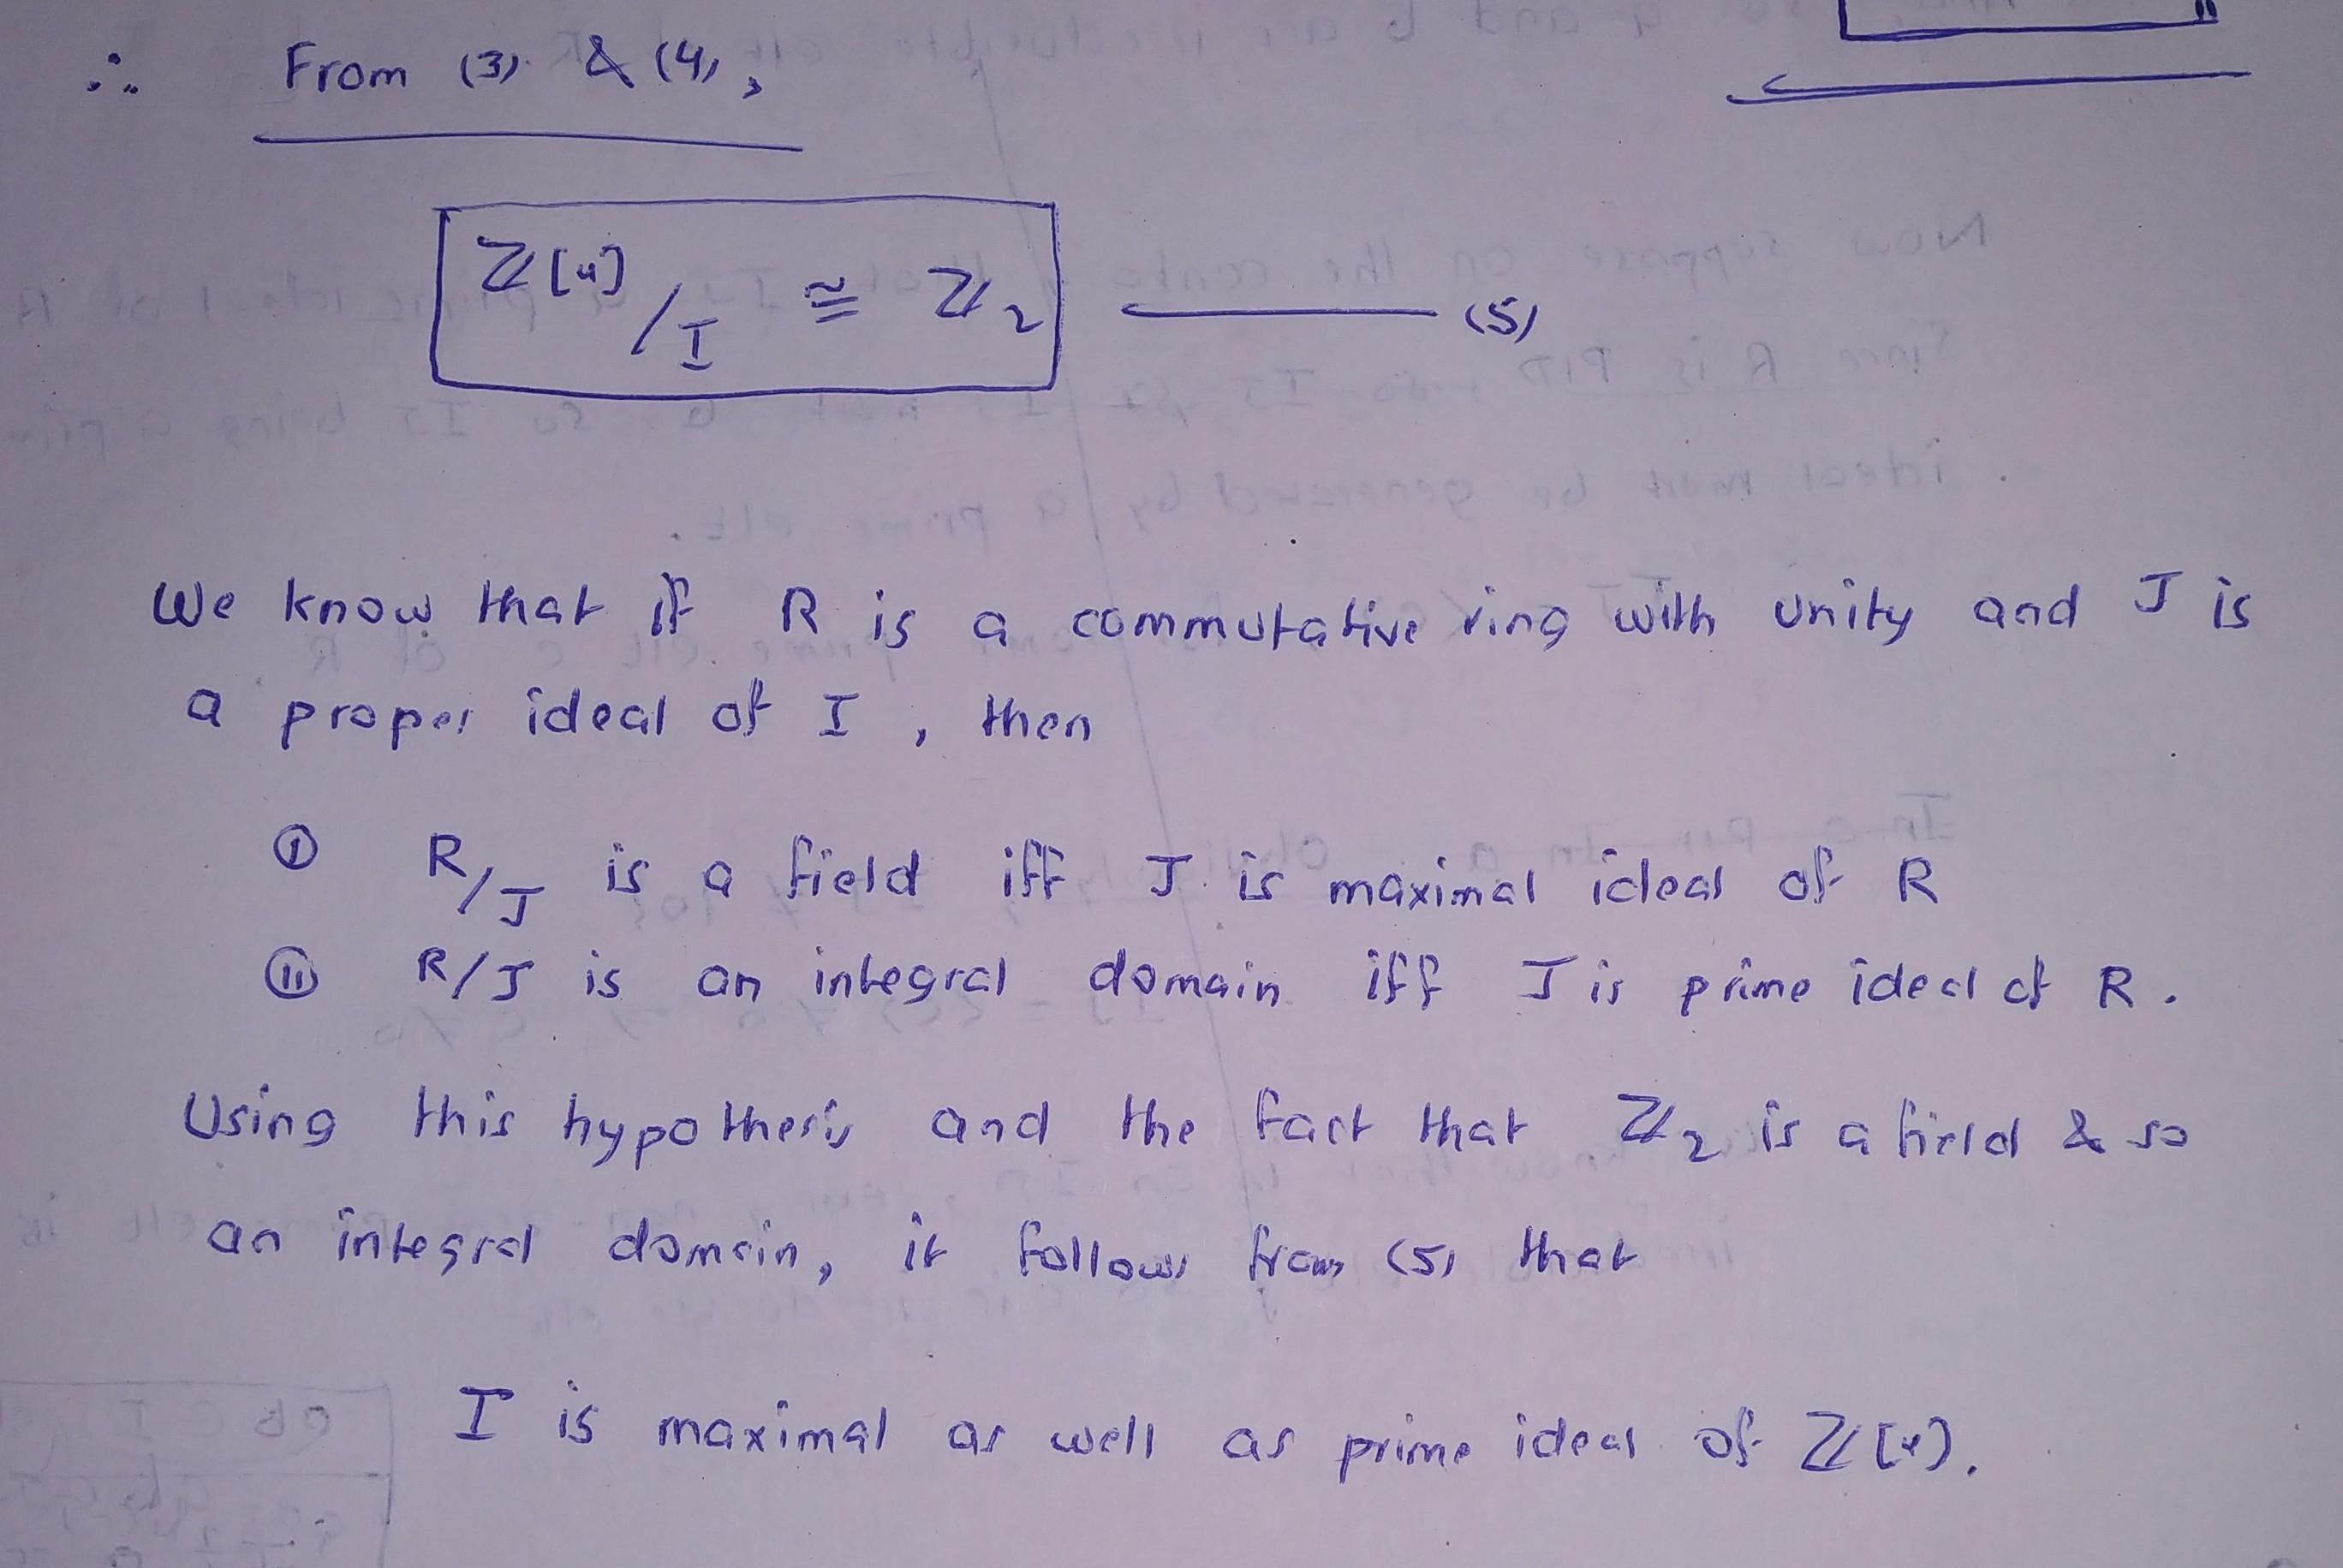 ∴ From (3) & (4),
Z[x]/I ≅ Z₂ ——— (5)
We know that if R is a commutative ring with unity and J is
a proper ideal of I, then
(i) R/J is a field iff J is maximal ideal of R
(ii) R/J is an integral domain iff J is prime ideal of R.
Using this hypothesis and the fact that Z₂ is a field & so
an integral domain, it follows from (5) that
I is maximal as well as prime ideal of Z[x].